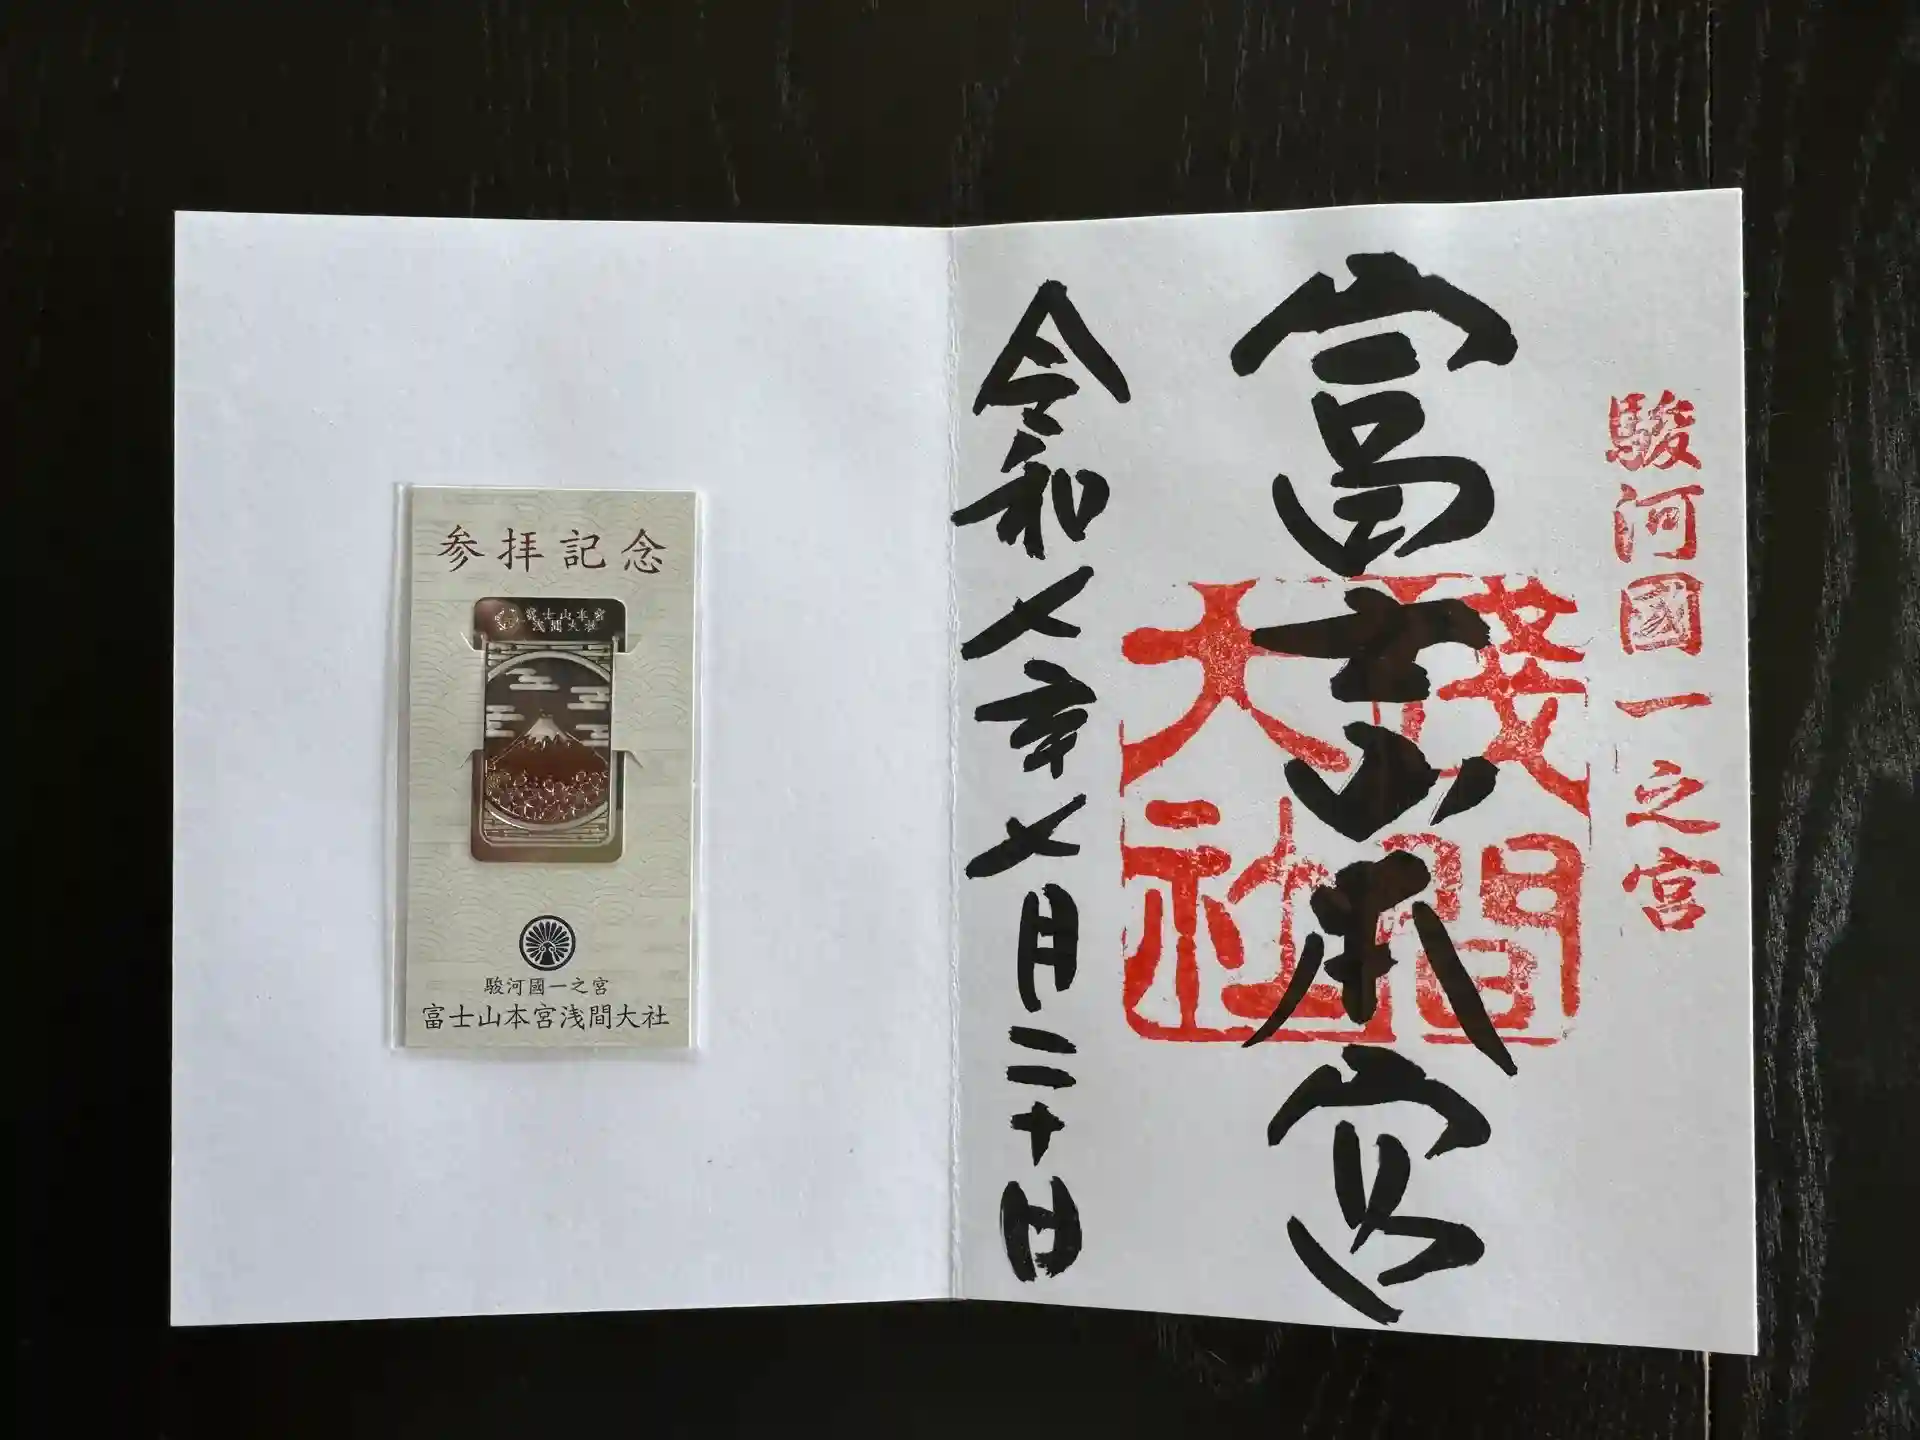 駿河國一之宮
富士山本宮
淺間大社
令和七年七月二十日
参拝記念
富士山本宮
浅間大社
駿河國一之宮
富士山本宮浅間大社